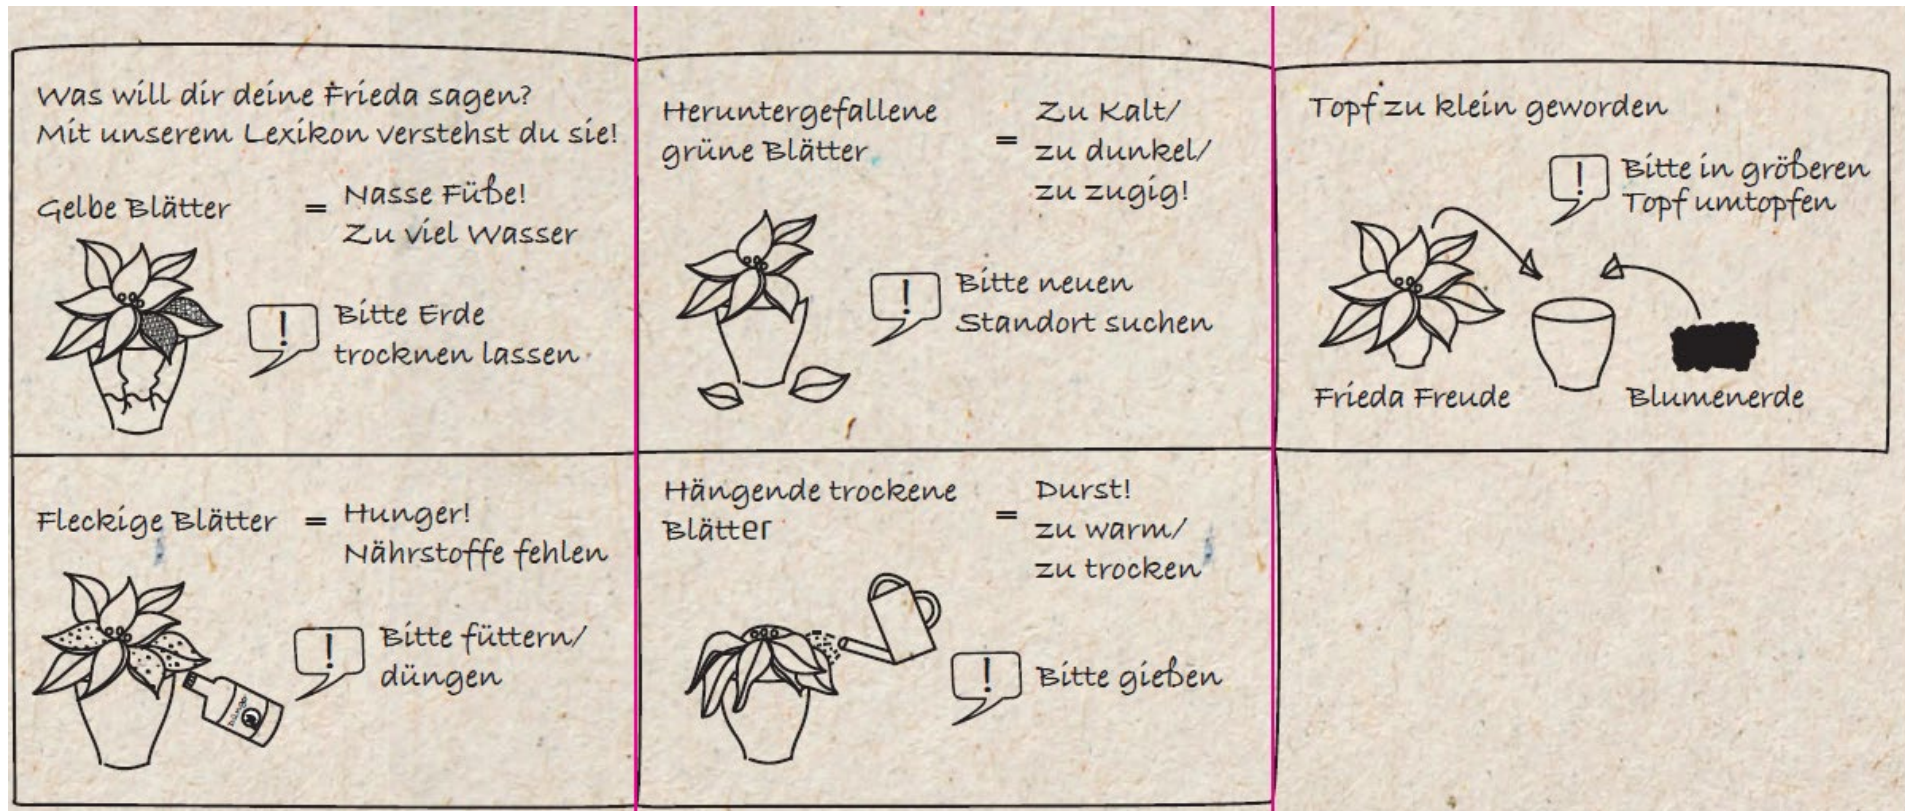 Was will dir deine Frieda sagen?
Mit unserem Lexikon verstehst du sie!
Gelbe Blätter = Nasse Füße!
Zu viel Wasser
! Bitte Erde
trocknen lassen
Fleckige Blätter = Hunger!
Nährstoffe fehlen
! Bitte füttern/
düngen
Dünger
Heruntergefallene
grüne Blätter
= Zu Kalt/
zu dunkel/
zu zugig!
! Bitte neuen
Standort suchen
Hängende trockene
Blätter
= Durst!
zu warm/
zu trocken
! Bitte gießen
Topf zu klein geworden
! Bitte in größeren
Topf umtopfen
Frieda Freude
Blumenerde